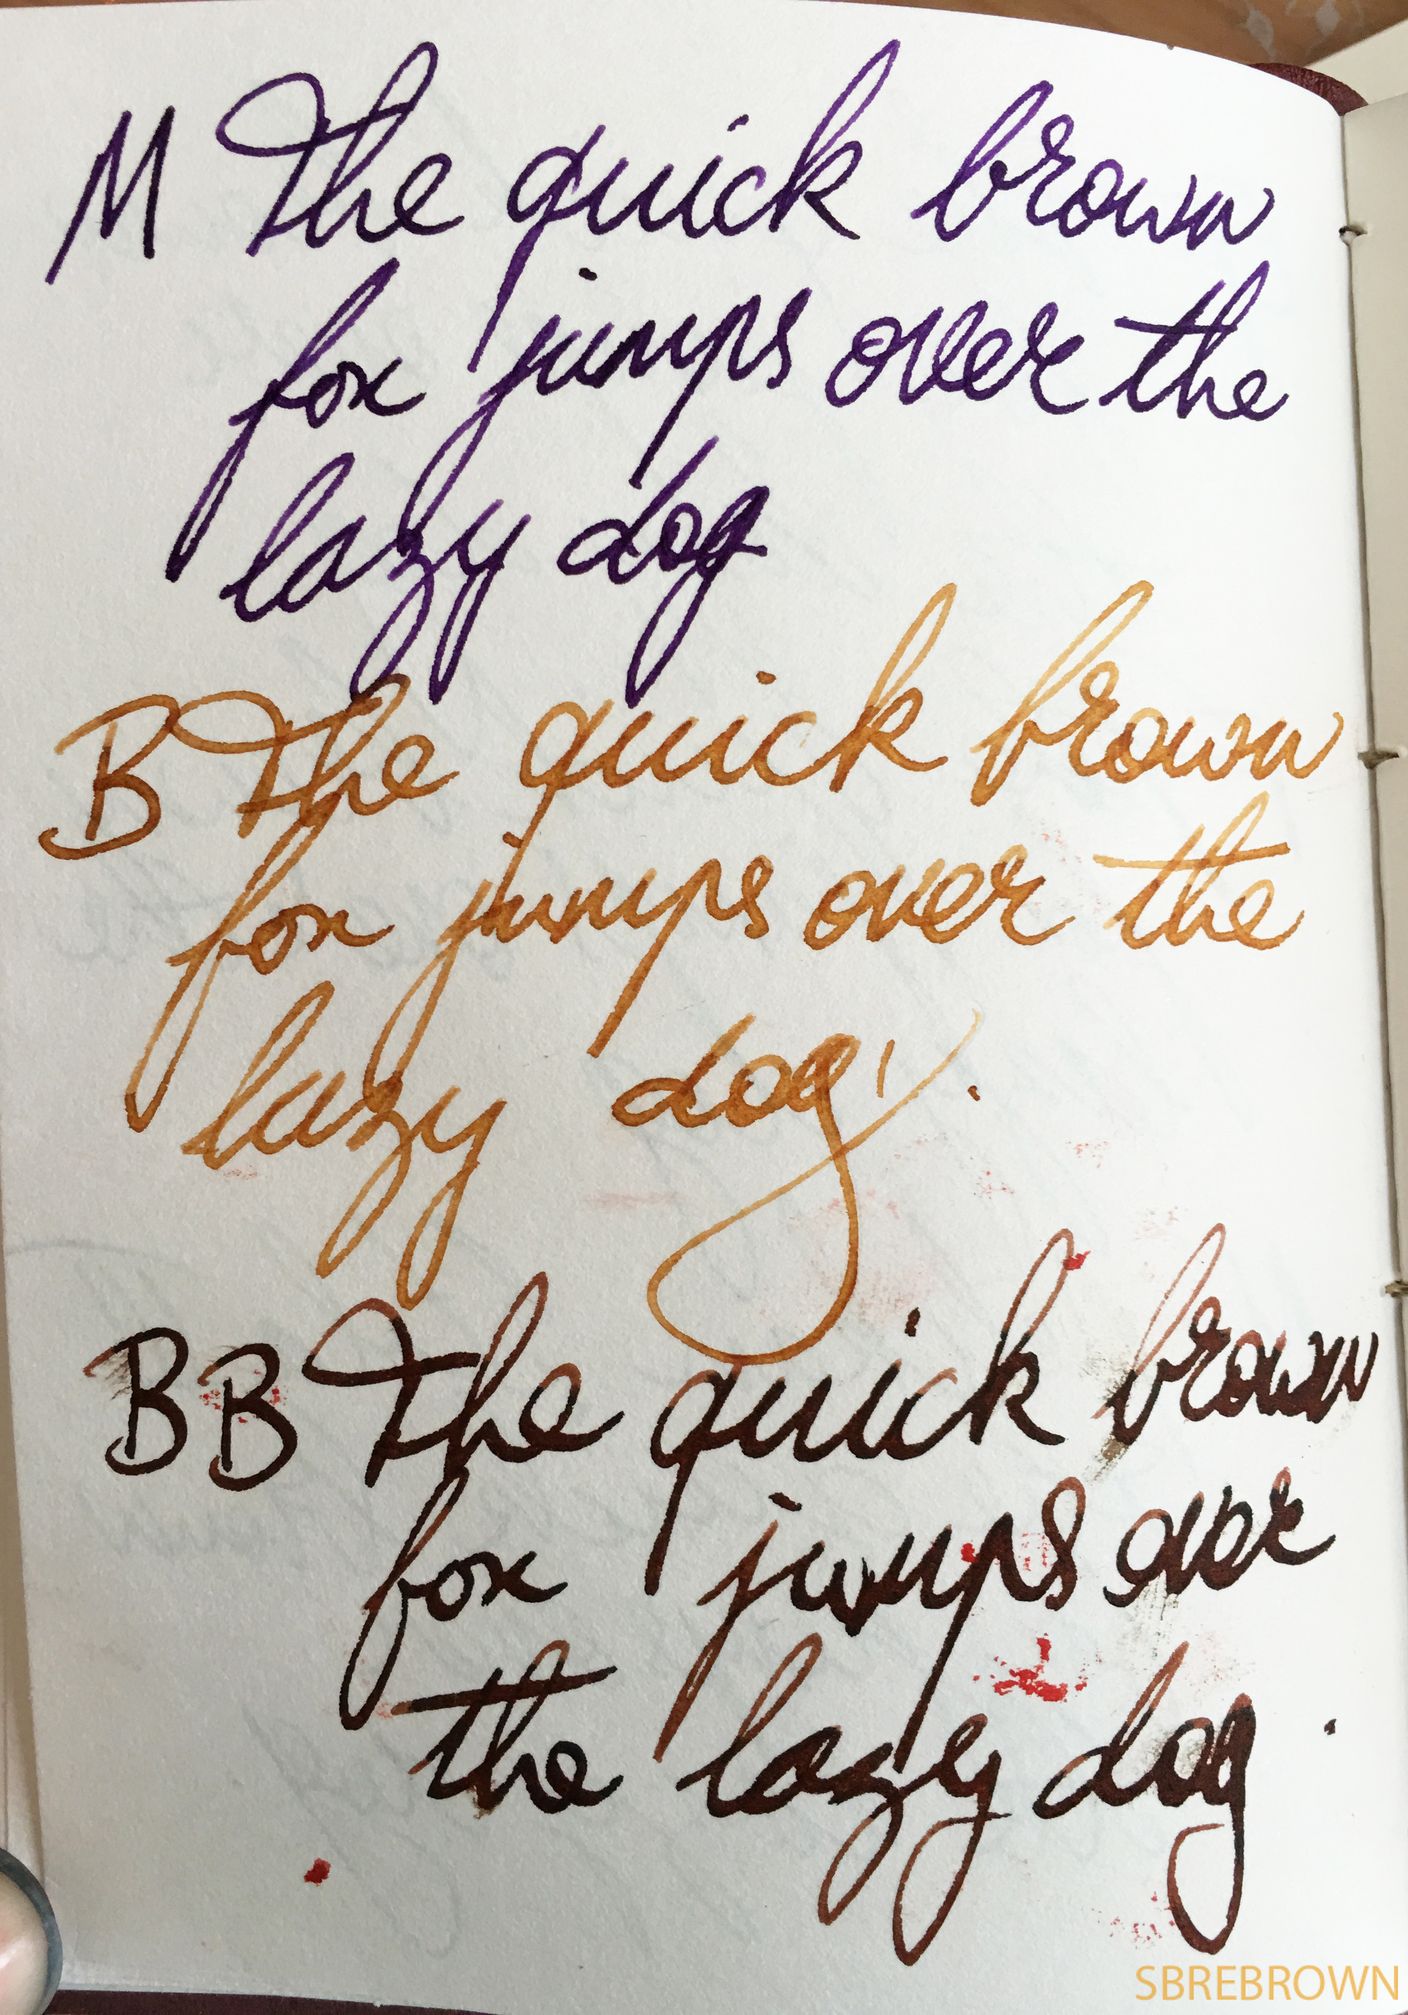 M The quick brown
fox jumps over the
lazy dog
B The quick brown
fox jumps over the
lazy dog.
BB The quick brown
fox jumps over
the lazy dog.
SBREBROWN